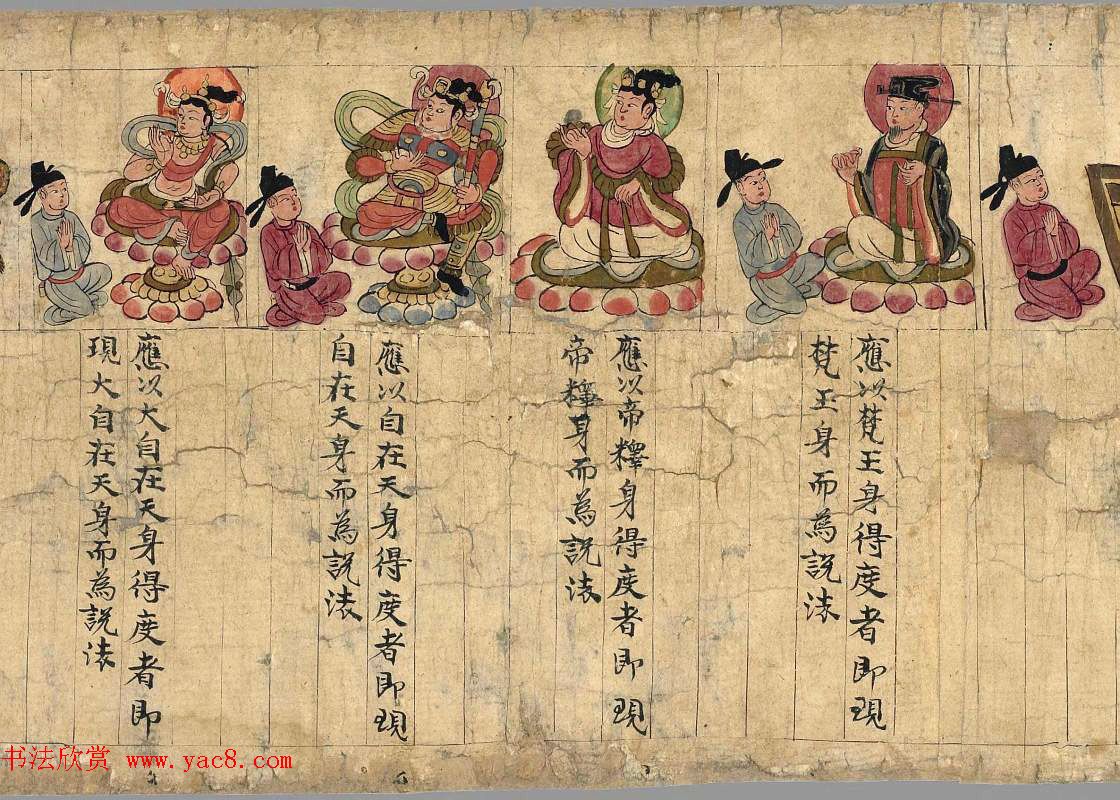 應以梵王身得度者即現
梵王身而為說法
應以帝釋身得度者即現
帝釋身而為說法
應以自在天身得度者即現
自在天身而為說法
應以大自在天身得度者即
現大自在天身而為說法
书法欣赏 www.yac8.com